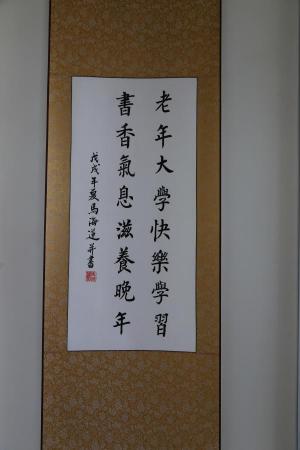 老年大學快樂學習
書香氣息滋養晚年
戊戌年夏馬海蓮并書